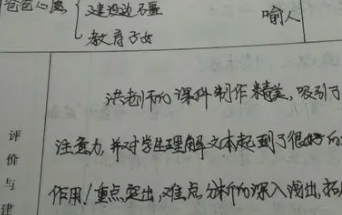 爸爸心愿 { 建设边疆 喻人
教育子女
洪老师的课件制作精美，吸引了
注意力，并对学生理解文本起到了很好的
作用/重点突出，难点分析的深入浅出，拓
评价与建